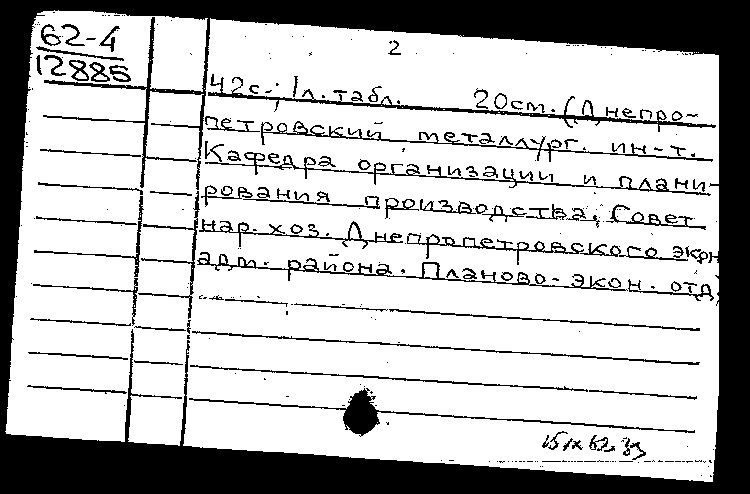 62-4
12885
2
42с.; 1л. табл. 20см. (Днепро-
петровский металлург. ин-т.
Кафедра организации и плани-
рования производства. Совет
нар. хоз. Днепропетровского экон
адм. района. Планово-экон. отд.